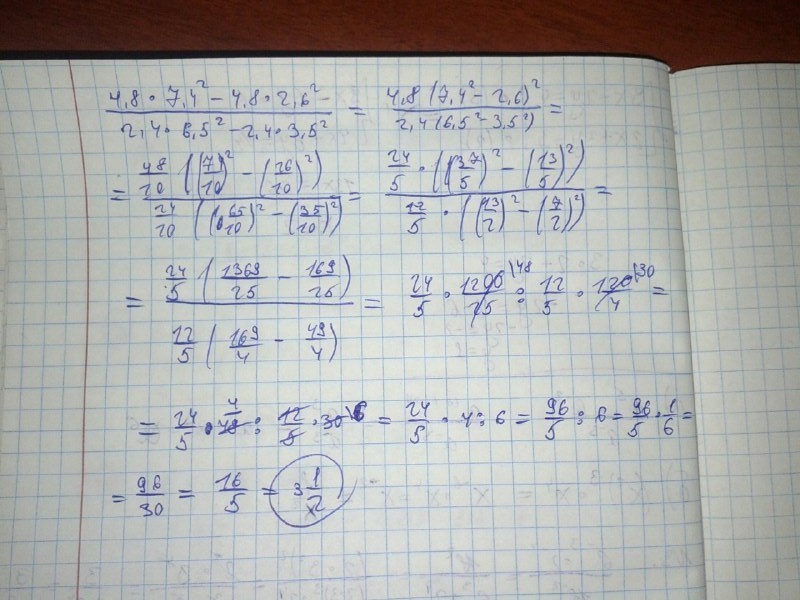 (4,8 · 7,4² − 4,8 · 2,6²) / (2,4 · 6,5² − 2,4 · 3,5²) = 4,8 (7,4² − 2,6)² / 2,4 (6,5² − 3,5²) =
= 48/10 ((74/10)² − (26/10)²) / 24/10 ((65/10)² − (35/10)²) = 24/5 · ((37/5)² − (13/5)²) / 12/5 · ((13/2)² − (7/2)²) =
= 24/5 (1369/25 − 169/25) / 12/5 (169/4 − 49/4) = 24/5 · 1200/25 \48 : 12/5 · 120/4 \30 =
= 24/5 · 48 4 : 12/5 · 30 \6 = 24/5 · 4 : 6 = 96/5 : 6 = 96/5 · 1/6 =
= 96/30 = 16/5 = 3 1/2